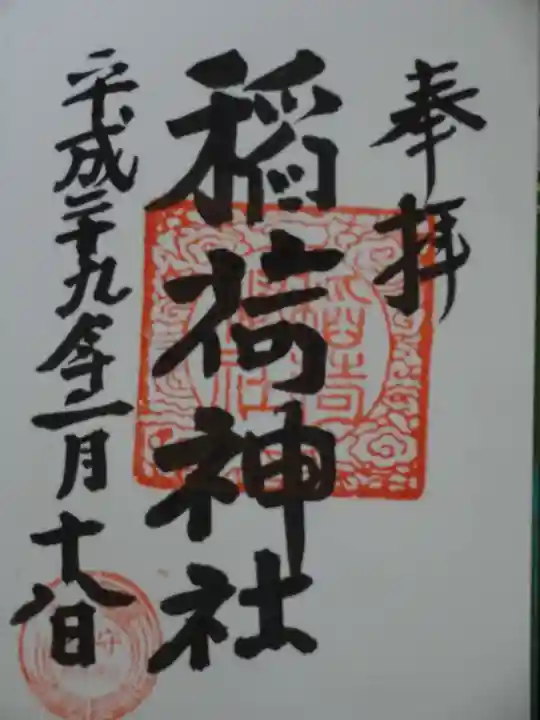 奉拝
稲荷神社
平成二十九年二月十八日